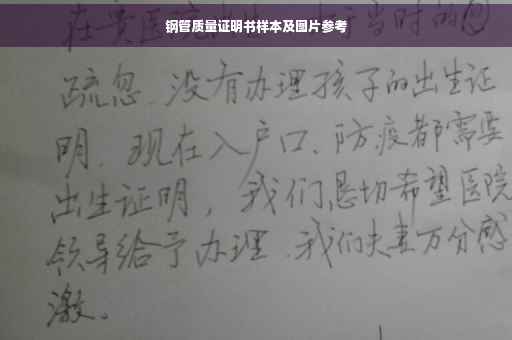 钢管质量证明书样本及图片参考
在贵医院 于当时的忽
疏忽、没有办理孩子的出生证
明、现在入户口、防疫都需要
出生证明，我们恳切希望医院
领导给予办理、我们夫妻万分感
激。